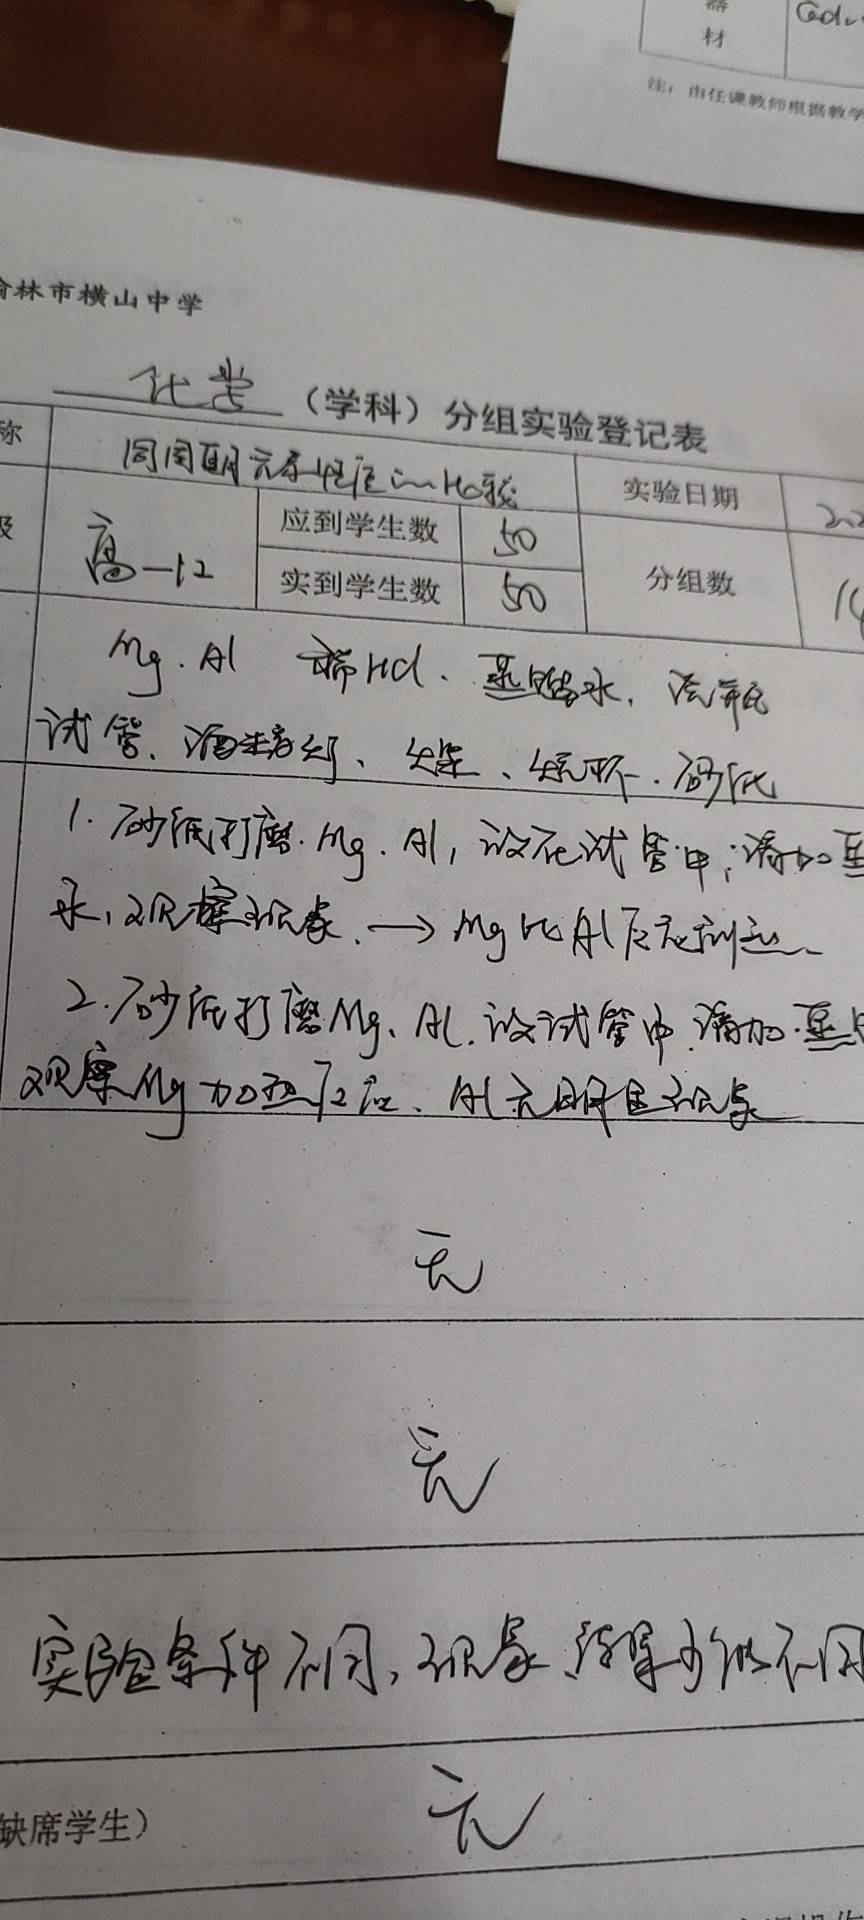 器
材
注：由任课教师根据教学
榆林市横山中学
化学（学科）分组实验登记表
称 同周期元素性质的比较 实验日期
级 高一12 应到学生数 50 分组数
实到学生数 50
Mg. Al 稀HCl. 蒸馏水.
试管、酒精灯、火柴、烧杯. 砂纸
1. 砂纸打磨. Mg. Al, 放在试管中; 滴加蒸
水, 观察现象. → Mg比Al反应剧烈
2. 砂纸打磨Mg、Al. 放试管中. 滴加. 蒸
观察Mg加热反应、Al无明显现象
无
无
实验条件不同, 现象 结果可能不同
缺席学生） 无